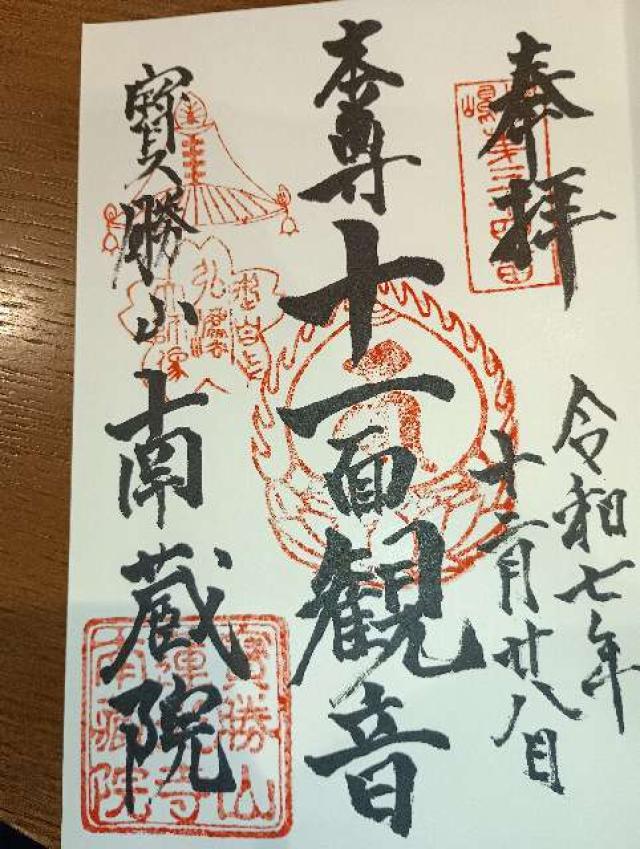 奉拝
令和七年
十二月廿八日
本尊十一面觀音
寳勝山南蔵院
寳勝山
蓮光寺
南蔵院